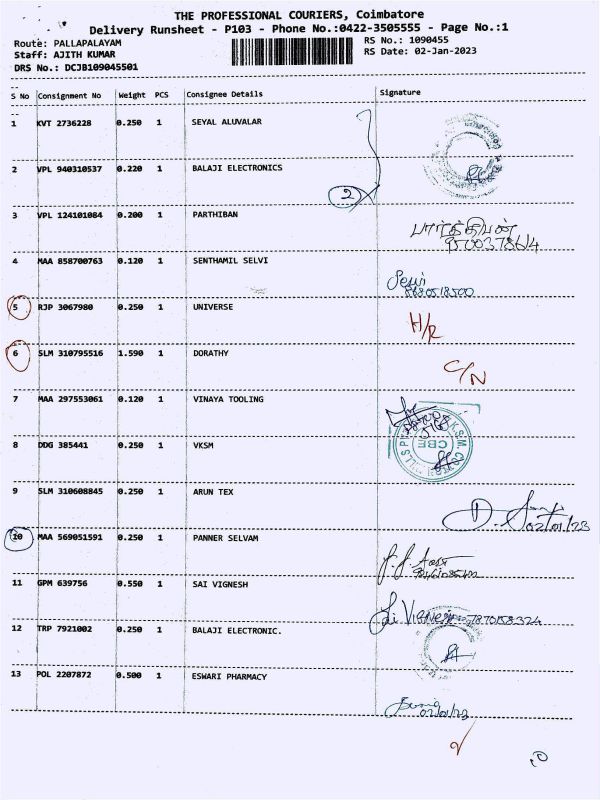 THE PROFESSIONAL COURIERS, Coimbatore
Delivery Runsheet - P103 - Phone No.:0422-3505555 - Page No.:1
Route: PALLAPALAYAM
RS No.: 1090455
Staff: AJITH KUMAR
RS Date: 02-Jan-2023
DRS No.: DCJB109045501
S No Consignment No Weight PCS Consignee Details Signature
1 KVT 2736228 0.250 1 SEYAL ALUVALAR
2 VPL 940310537 0.220 1 BALAJI ELECTRONICS
2
3 VPL 124101084 0.200 1 PARTHIBAN
பார்த்திபன்
4 MAA 858700763 0.120 1 SENTHAMIL SELVI
8680518500
5 RJP 3067980 0.250 1 UNIVERSE
H/R
6 SLM 310795516 1.590 1 DORATHY
C/N
7 MAA 297553061 0.120 1 VINAYA TOOLING
8 DDG 385441 0.250 1 VKSM
CBE
9 SLM 310608845 0.250 1 ARUN TEX
02/01/23
10 MAA 569051591 0.250 1 PANNER SELVAM
11 GPM 639756 0.550 1 SAI VIGNESH
12 TRP 7921002 0.250 1 BALAJI ELECTRONIC.
13 POL 2207872 0.500 1 ESWARI PHARMACY
02/01/23